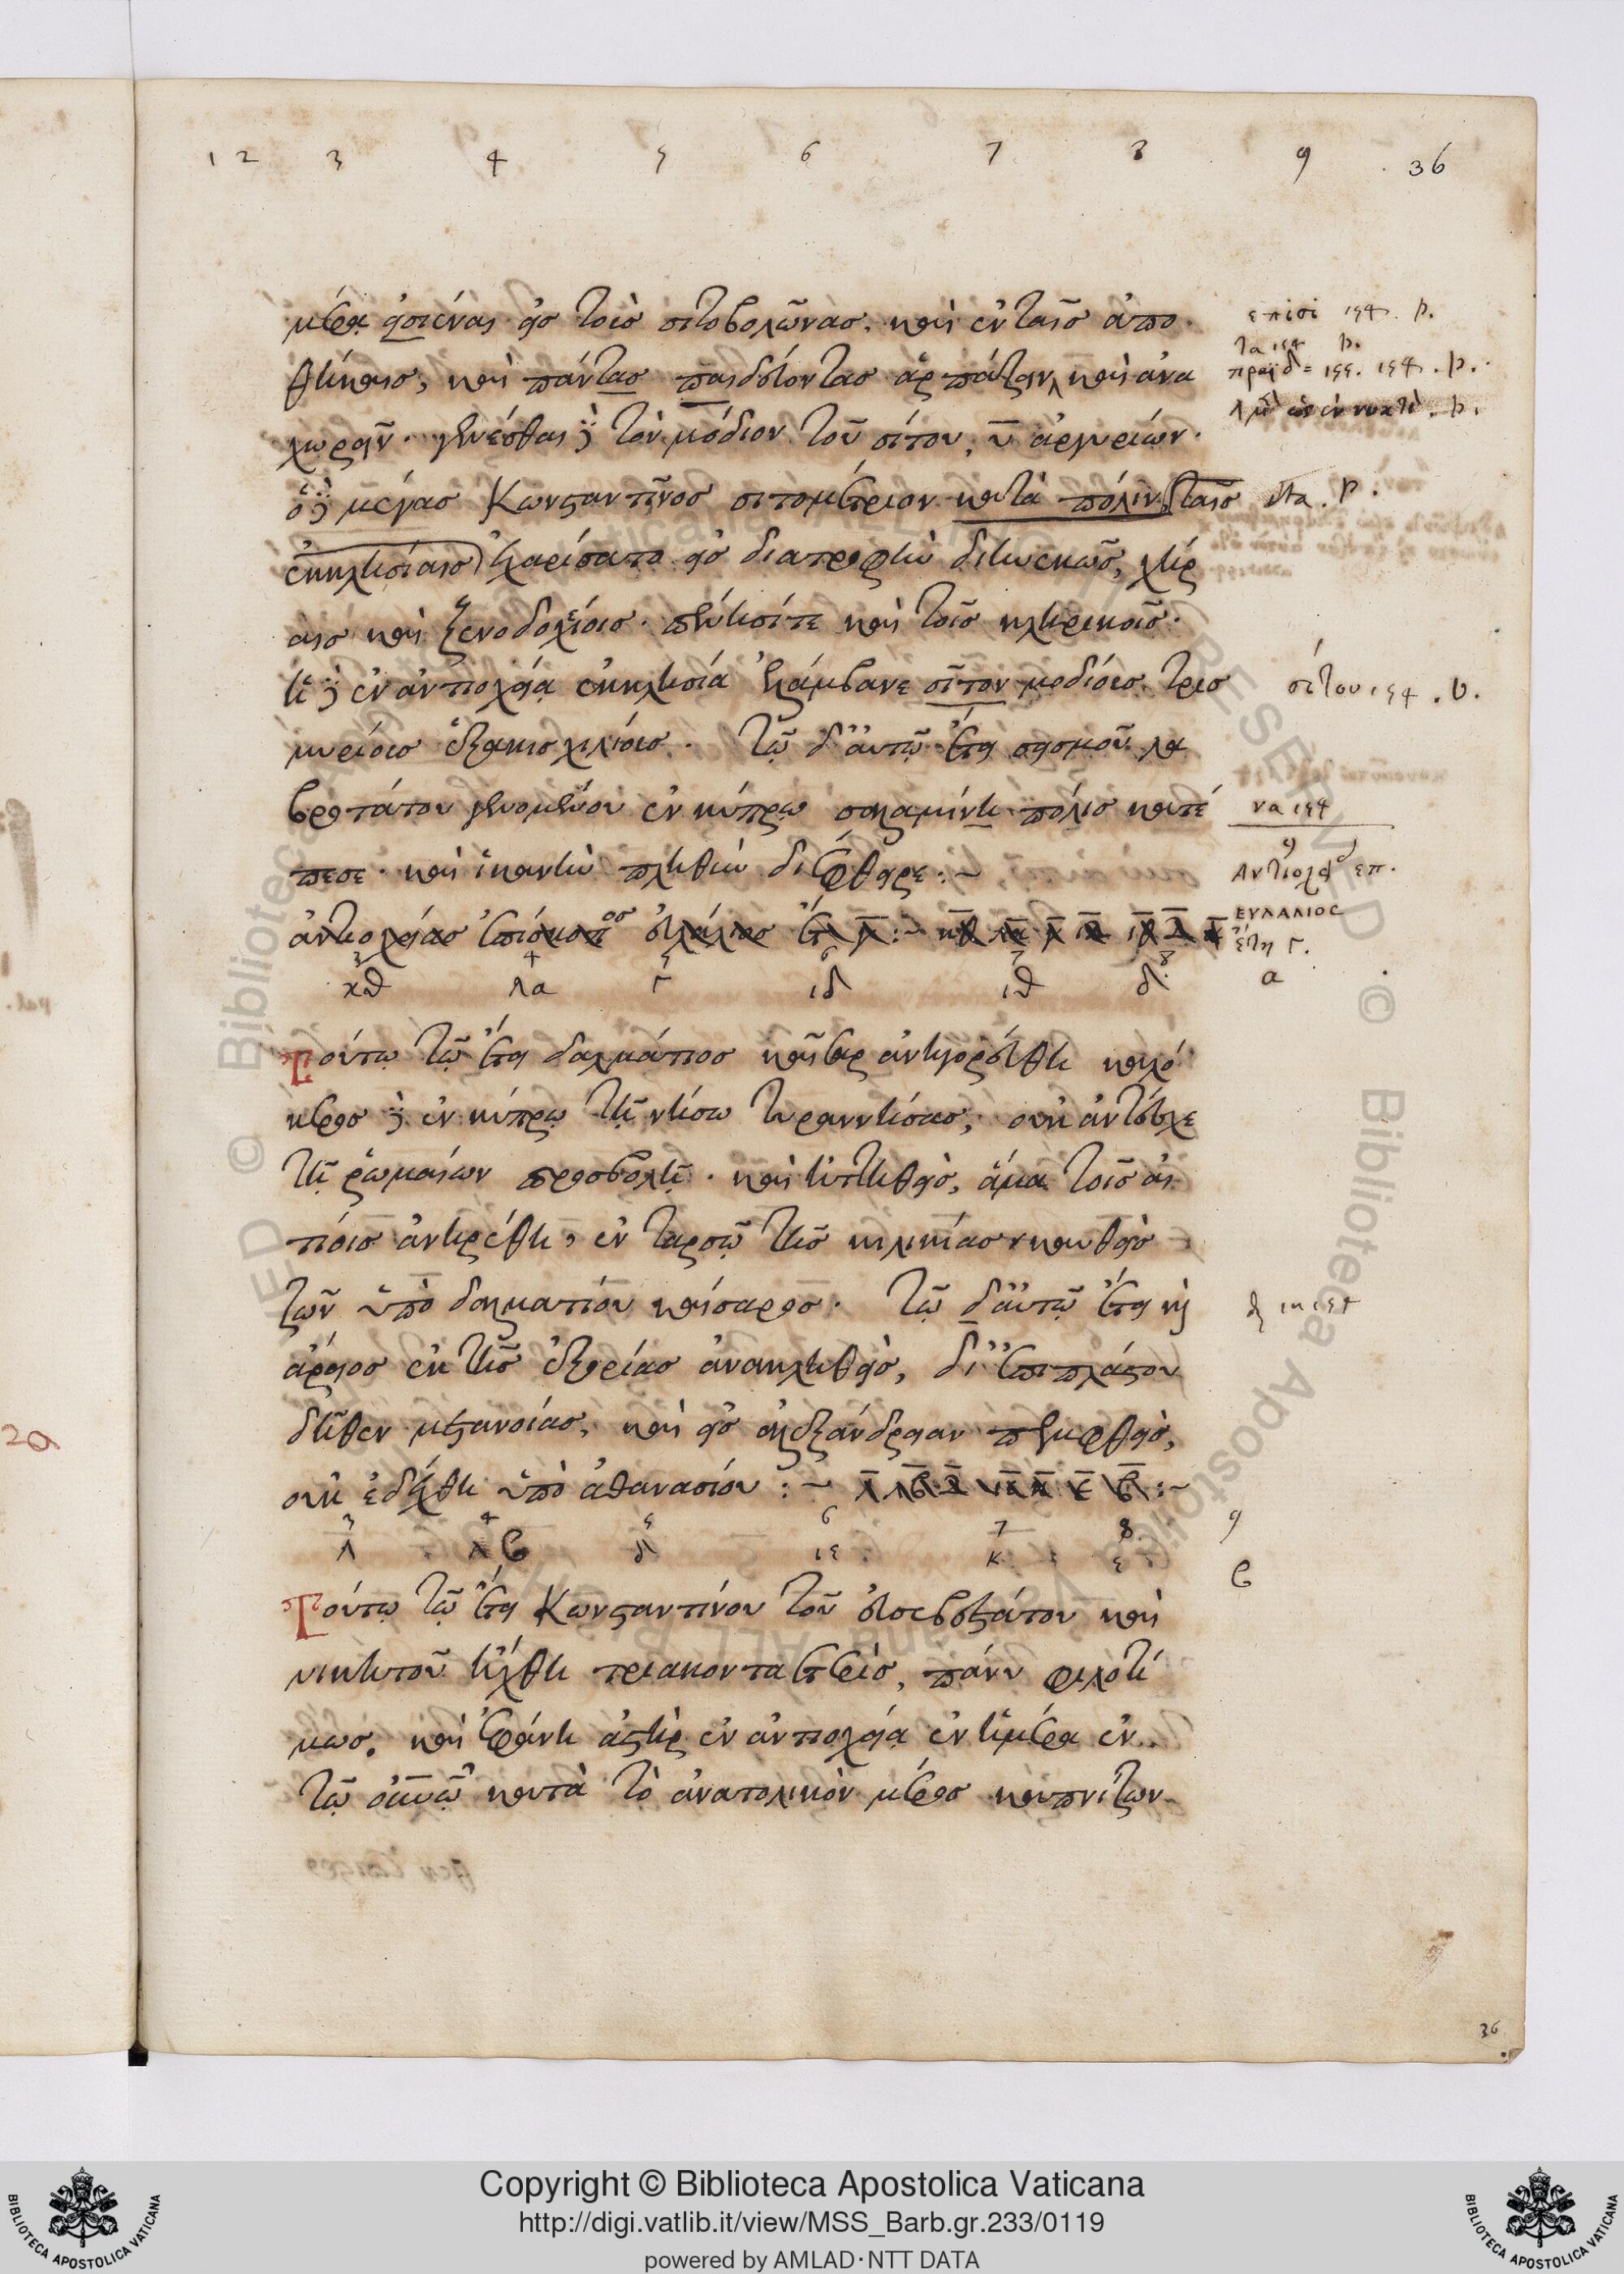 1 2 3 4 5 6 7 8 9 36
μέρᾳ εἰσιέναι εἰς τοὺς σιτοβολῶνας, καὶ ἐν ταῖς ἀπο
θήκαις, καὶ πάντας παιδεύοντας ἁρπάζειν καὶ ἀνα
χωρεῖν. γενέσθαι δὲ τὸν μόδιον τοῦ σίτου, υ ἀργυρίων.
ὁ δὲ μέγας Κωνσταντῖνος σιτομέτριον κατὰ πόλιν ταῖς
ἐκκλησίαις ἐχαρίσατο εἰς διατροφὴν διηνεκῶς, χήρ
αις καὶ ξενοδοχείοις. πένησί τε καὶ τοῖς κληρικοῖς.
ἡ δὲ ἐν ἀντιοχείᾳ ἐκκλησία ἐλάμβανε σῖτον μοδίους τρισ
μυρίους ἑξακισχιλίους. Τῷ δ' αὐτῷ ἔτει σεισμοῦ λα
βροτάτου γενομένου ἐν κύπρῳ σαλαμίνη πόλις κατέ
πεσε. καὶ ἱκανὴν πληθὺν διέφθειρε :~
ἀντιοχείας ἐπίσκοπος εὐλάλιος ἔτη γ :~
3 4 5 6 7 8
κθ λα γ ιδ ιθ δ
Τούτῳ τῷ ἔτει δαλμάτιος καῖσαρ ἀνηγορεύθη καλό
κερος δὲ ἐν κύπρῳ τῇ νήσῳ τυραννήσας, οὐκ ἀντέσχε
τῇ ῥωμαίων προσβολῇ. καὶ ἡττηθεὶς, ἅμα τοῖς αἰ
τίοις ἀνῃρέθη, ἐν ταρσῷ τῆς κιλικίας καυθεὶς
ζῶν ὑπὸ δαλματίου καίσαρος. Τῷ δ' αὐτῷ ἔτει καὶ
ἄρειος ἐκ τῆς ἐξορίας ἀνακληθεὶς, δι' ἐπιπλάστου
δῆθεν μετανοίας, καὶ εἰς ἀλεξάνδρειαν πεμφθεὶς,
οὐκ ἐδέχθη ὑπὸ ἀθανασίου :~
3 4 5 6 7 8
λ λβ δ ιε κ ε
Τούτῳ τῷ ἔτει Κωνσταντίνου τοῦ εὐσεβεστάτου καὶ
νικητοῦ ἤχθη τριακονταετηρὶς, πάνυ φιλοτί
μως. καὶ ἐφάνη ἀστὴρ ἐν ἀντιοχείᾳ ἐν ἡμέρᾳ ἐν
τῷ οὐνῷ κατὰ τὸ ἀνατολικὸν μέρος καπνίζων
σίτου
9
Αντιοχεί επ.
ΕΥΛΑΛΙΟΣ
ἔτη γ.
α
9
β
20
36
Copyright © Biblioteca Apostolica Vaticana
http://digi.vatlib.it/view/MSS_Barb.gr.233/0119
powered by AMLAD·NTT DATA
BIBLIOTECA APOSTOLICA VATICANA
BIBLIOTECA APOSTOLICA VATICANA